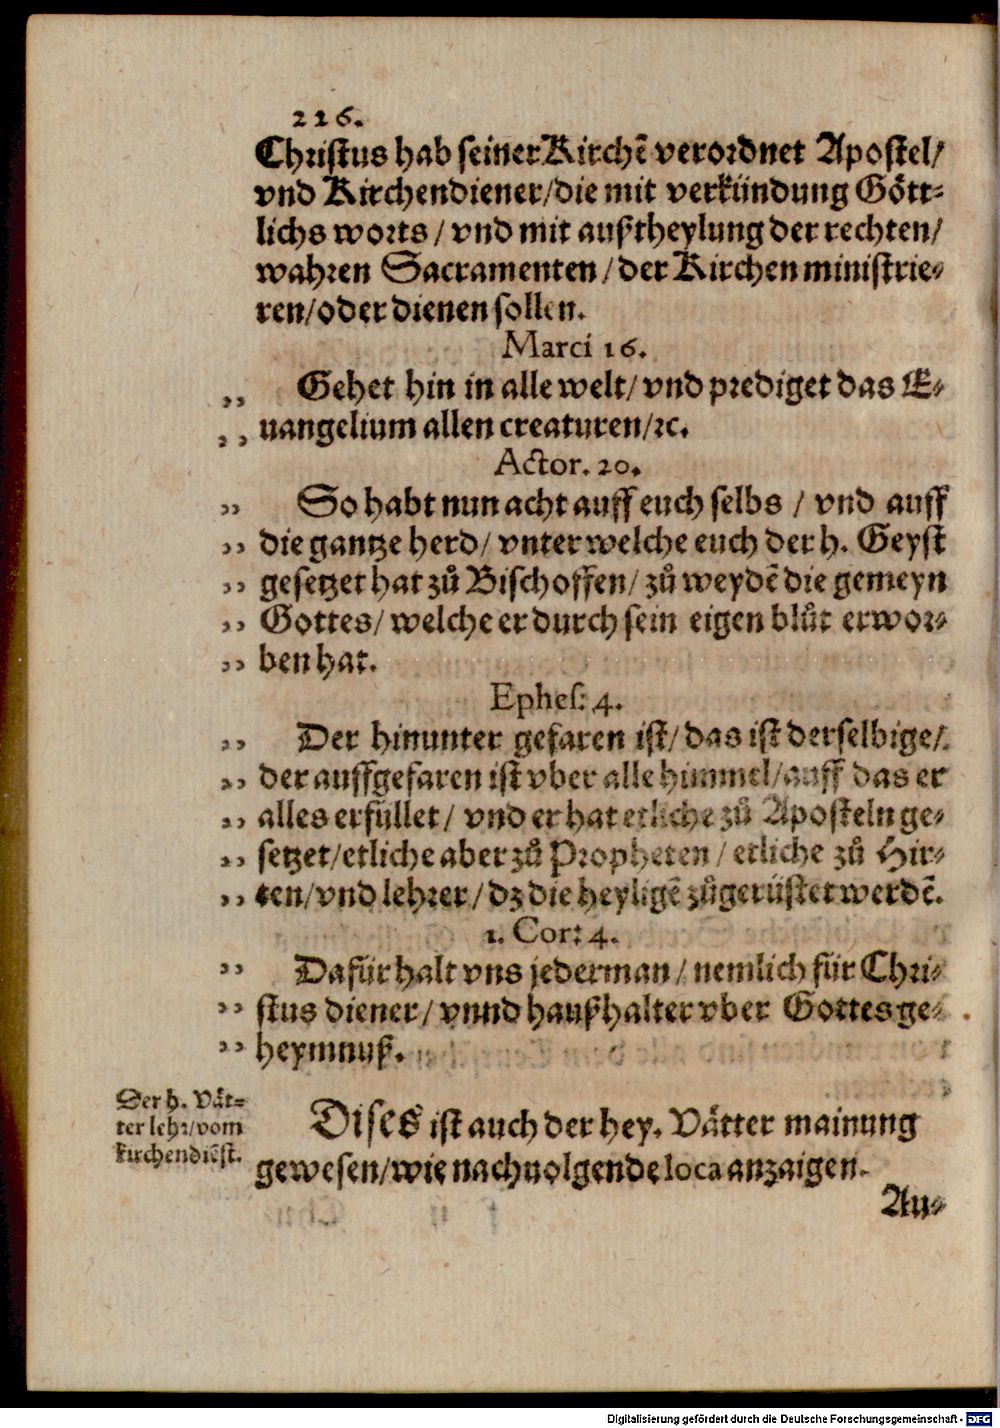 226.
Christus hab seiner Kirchē verordnet Apostel/
vnd Kirchendiener/die mit verkündung Gött⸗
lichs worts / vnd mit außtheylung der rechten/
wahren Sacramenten / der Kirchen ministrie⸗
ren/oder dienen sollen.
Marci 16.
„ Gehet hin in alle welt/ vnd prediget das E⸗
„ uangelium allen creaturen/ꝛc.
Actor. 20.
„ So habt nun acht auff euch selbs / vnd auff
„ die gantze herd/ vnter welche euch der h. Geyst
„ gesetzet hat zů Bischoffen/ zů weydē die gemeyn
„ Gottes/ welche er durch sein eigen blůt erwor⸗
„ ben hat.
Ephes: 4.
„ Der hinunter gefaren ist/ das ist derselbige/
„ der auffgefaren ist vber alle himmel/auff das er
„ alles erfüllet/ vnd er hat etliche zů Aposteln ge⸗
„ setzet/etliche aber zů Propheten / etliche zů Hir⸗
„ ten/vnd lehrer/ dz die heyligē zůgerüstet werdē.
1. Cor: 4.
„ Dafür halt vns jederman / nemlich für Chri⸗
„ stus diener/ vnnd haußhalter vber Gottes ge⸗
„ heymnuß.
Der h. Vät⸗
ter lehr/vom
kirchendiēst.
Dises ist auch der hey. Vätter mainung
gewesen/wie nachuolgende loca anzaigen.
Au⸗
Digitalisierung gefördert durch die Deutsche Forschungsgemeinschaft - DFG